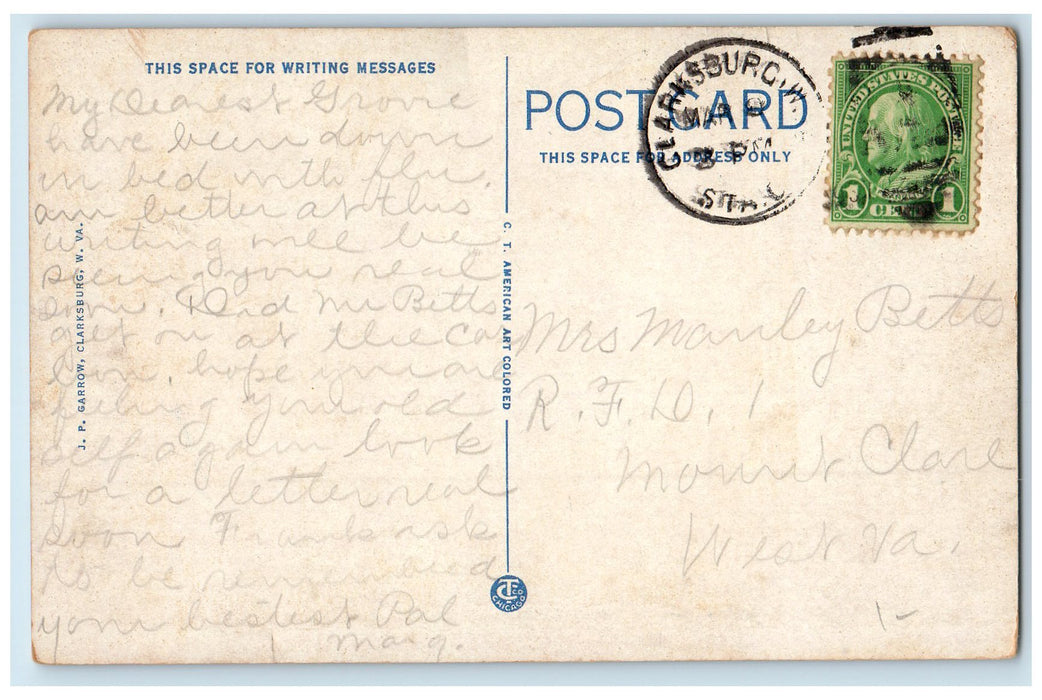 THIS SPACE FOR WRITING MESSAGES
My Dearest
have been down
in bed with flu.
am better at this
writing will be
seeing you real
soon. Did Mr Betts
get on at the Car
hope
feeling your old
self again look
for a letter real
soon Frank ask
to be remembered
your bestest Pal
Marg.
J. P. GARROW, CLARKSBURG, W. VA.
C. T. AMERICAN ART COLORED
C.T. CO. CHICAGO
POST CARD
THIS SPACE FOR ADDRESS ONLY
CLARKSBURG, W.
MAR
UNITED STATES POSTAGE
1 CENT 1
Mrs Manley Betts
R.F.D. 1
Mount Clare
West Va.
1-